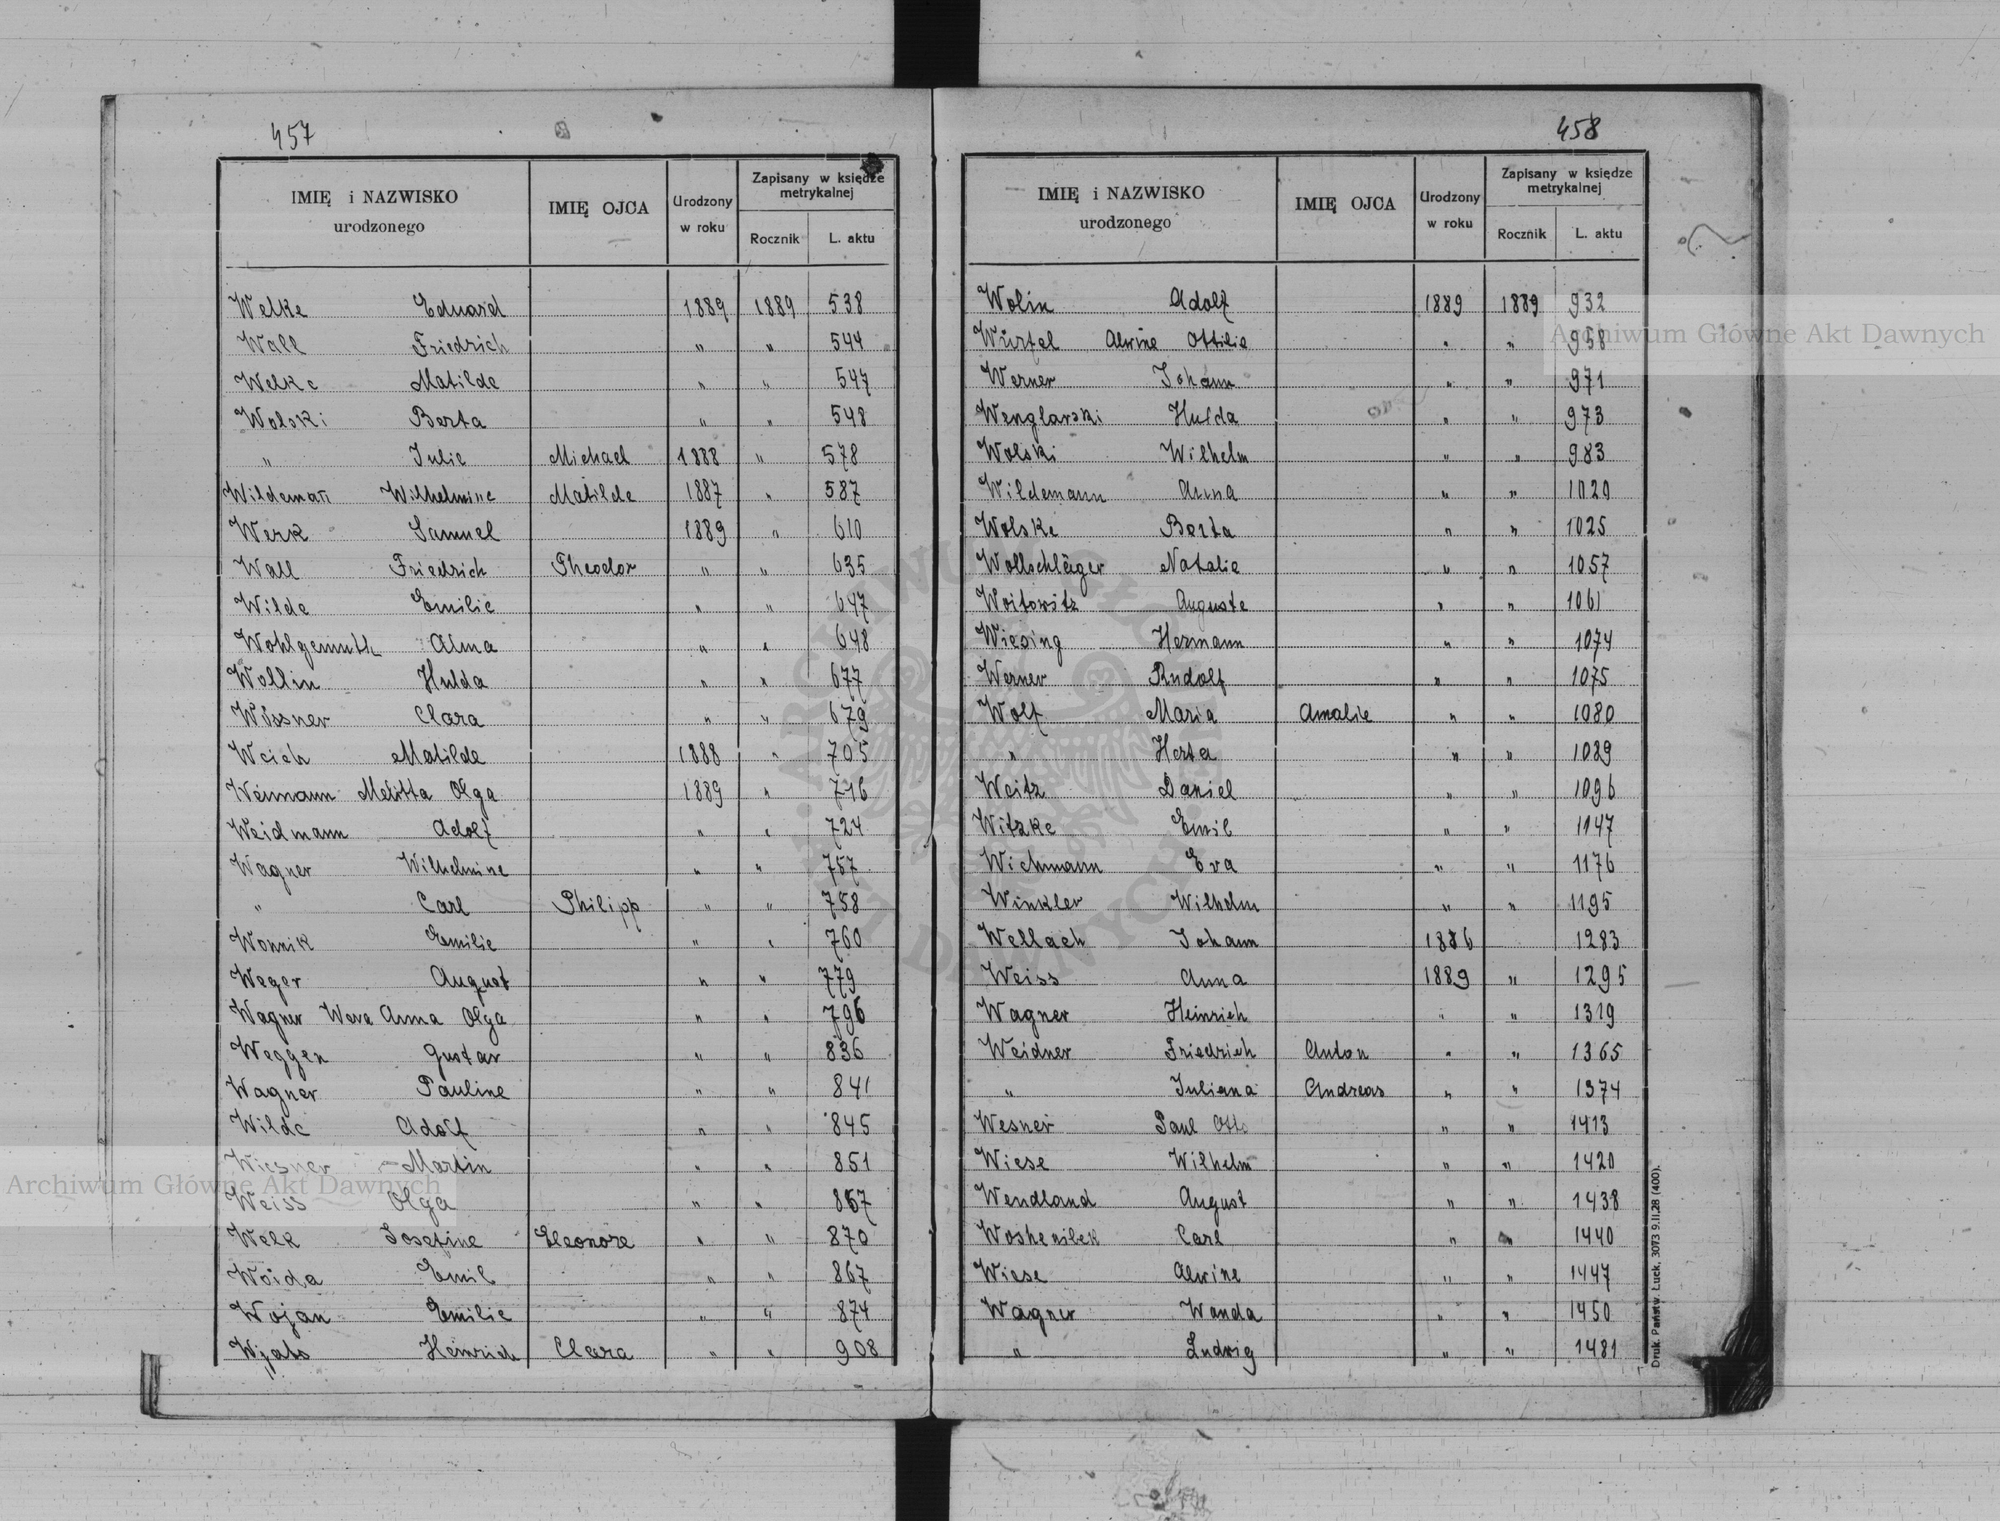 457
IMIĘ i NAZWISKO urodzonego IMIĘ OJCA Urodzony w roku Zapisany w księdze metrykalnej Rocznik L. aktu
Welke Eduard 1889 1889 538
Wall Friedrich " " 544
Welke Matilde " " 547
Wolski Berta " " 548
" Julie Michael 1888 " 578
Wildemañ Wilhelmine Matilde 1887 " 587
Werk Samuel 1889 " 610
Wall Friedrich Theodor " " 635
Wilde Emilie " " 647
Wohlgemuth Alma " " 648
Wollin Hulda " " 677
Wössner Clara " " 679
Weich Matilde 1888 " 705
Weimann Melitta Olga 1889 " 716
Weidmann Adolf " " 724
Wagner Wilhelmine " " 757
" Carl Philipp " " 758
Wonnik Emilie " " 760
Weger August " " 779
Wagner Wera Anna Olga " " 796
Weggen Gustav " " 836
Wagner Pauline " " 841
Wilde Adolf " " 845
Wiesner Martin " " 851
Weiss Olga " " 867
Welk Josefine Eleonore " " 870
Woida Emil " " 867
Wojan Emilie " " 874
Wjats Heinrich Clara " " 908
458
IMIĘ i NAZWISKO urodzonego IMIĘ OJCA Urodzony w roku Zapisany w księdze metrykalnej Rocznik L. aktu
Wolin Adolf 1889 1889 932
Würfel Alwine Ottilie " " 958
Werner Johann " " 971
Wenglarski Hulda " " 973
Wolski Wilhelm " " 983
Wildemann Anna " " 1020
Wolske Berta " " 1025
Wollschläger Natalie " " 1057
Woitowitz Auguste " " 1061
Wiesing Hermann " " 1074
Werner Rudolf " " 1075
Wolf Maria Amalie " " 1080
" Herta " " 1089
Weitz Daniel " " 1096
Witzke Emil " " 1147
Wichmann Eva " " 1176
Winkler Wilhelm " " 1195
Wellach Johann 1886 1283
Weiss Anna 1889 " 1295
Wagner Heinrich " " 1319
Weidner Friedrich Anton " " 1365
" Juliana Andreas " " 1374
Wesner Paul Otto " " 1413
Wiese Wilhelm " " 1420
Wendland August " " 1438
Carl " " 1440
Wiese Alwine " " 1447
Wagner Wanda " " 1450
" Ludwig " " 1481
Druk. Państw. Łuck, 3073 9.II.28 (400).
Archiwum Główne Akt Dawnych
Archiwum Główne Akt Dawnych
ARCHIWUM GŁÓWNE AKT DAWNYCH